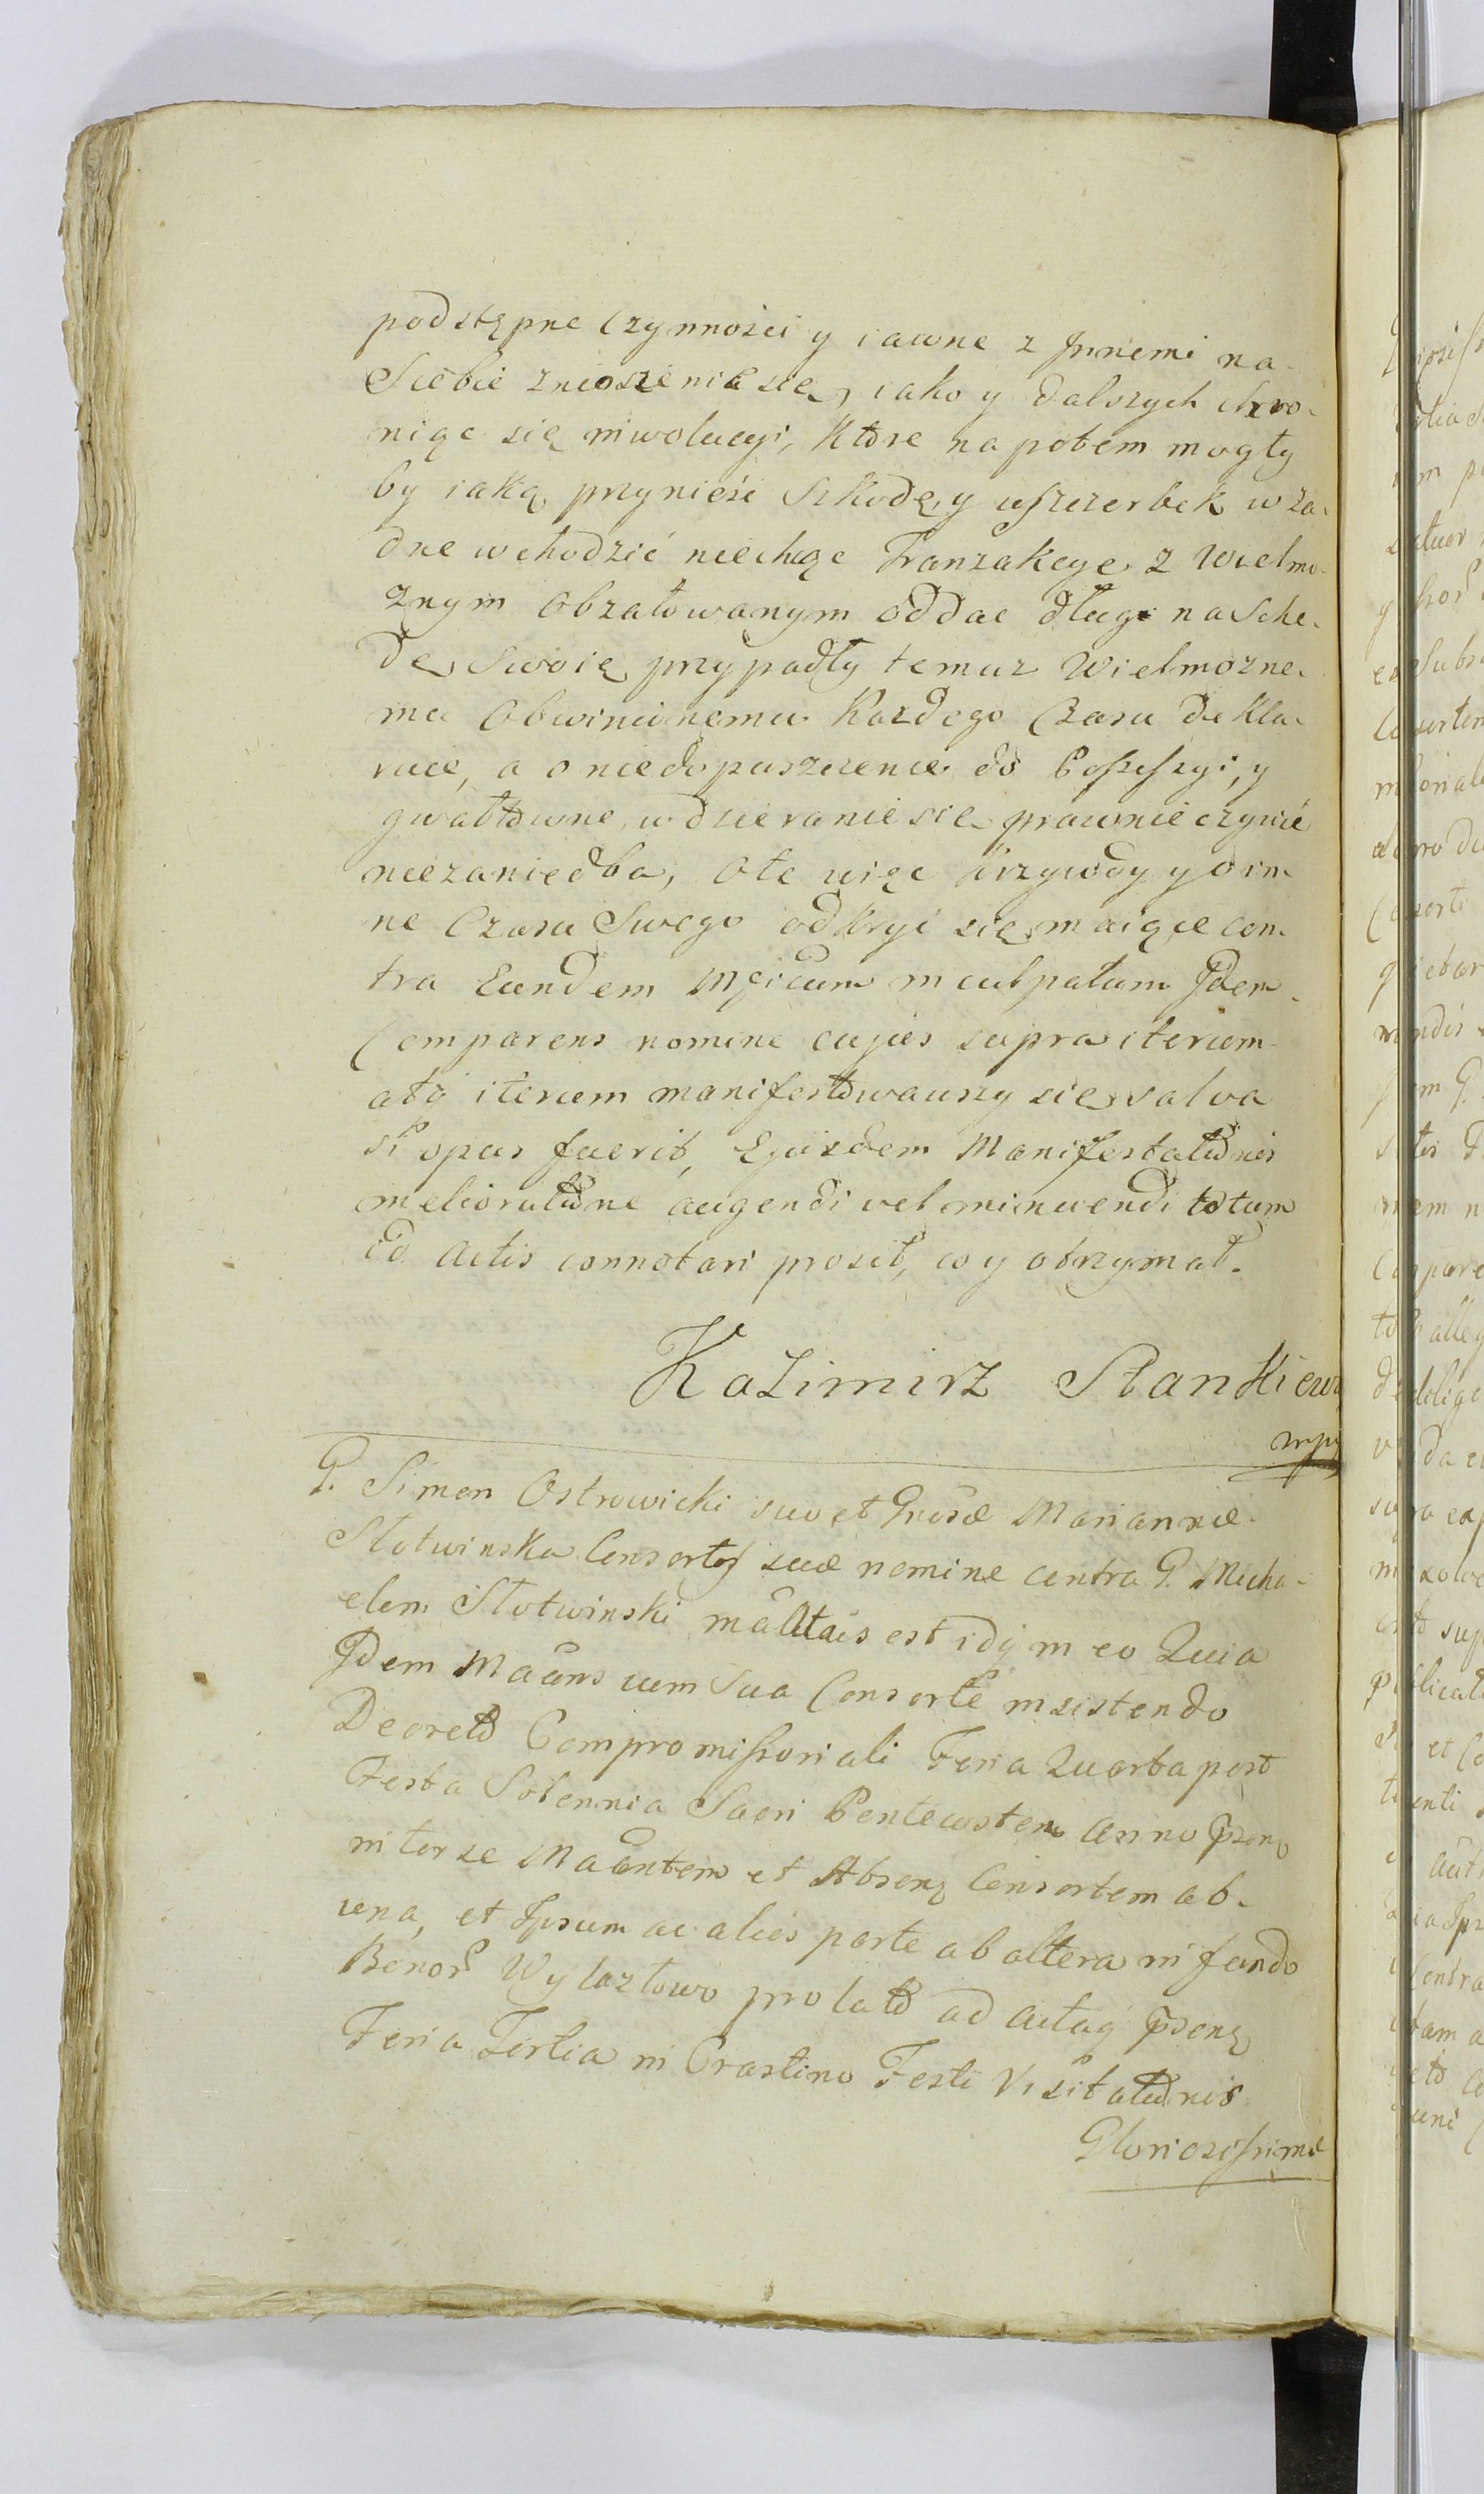 podstępne Czynności y iawne z Jnnemi na-
Siebie znioszenia się, iako y dalszych chro-
niąc się inwolucyi, Które na potem mogły
by iaką przynieść Szkodę, y uszczerbek w ża-
dne wchodzić niechcąc Tranzakcye z Wielmo-
żnym Obżałowanym oddać długi na Sche-
dę Swoię przypadły temuż Wielmożne-
mu Obwinionemu Każdego Czasu dekla-
ruie, a o niedopuszczenie do Possessyi, y
gwałtowne wdzieranie się prawnie czynić
niezaniedba, Ote więc krzywdy y oin-
ne Czasu Swego odkryć się maiące con-
tra Eundem Mficum inculpatum Jdem
Comparens nomine cujus supra iterum
atq iterum manifestowawszy się salva
si opus fuerit, Ejusdem Manifestationis
melioratione augendi vel minuendi totum
id Actis connotari prosił, co y otrzymał.
Kazimirz Stankiewi
mpp
G. Simon Ostrowicki suo et Gnosæ Mariannæ
Słotwinska Consortis suæ nomine contra G. Micha-
elem Słotwinski mãttus est idq in eo Quia
Jdem Mãans cum Sua Consorte insistendo
Decreto Compromissoriali Feria Quarta post
Festa Solennia Sacri Pentecostem Anno pren
inter se Mãantem et Absenq Consortem ab-
una, et Ipsum ac alios parte ab altera in fundo
Bonor Wylazłowo prolato ad Actaq prenq
Feria Tertia in Crastino Festi Visitationis
Gloriosissimæ